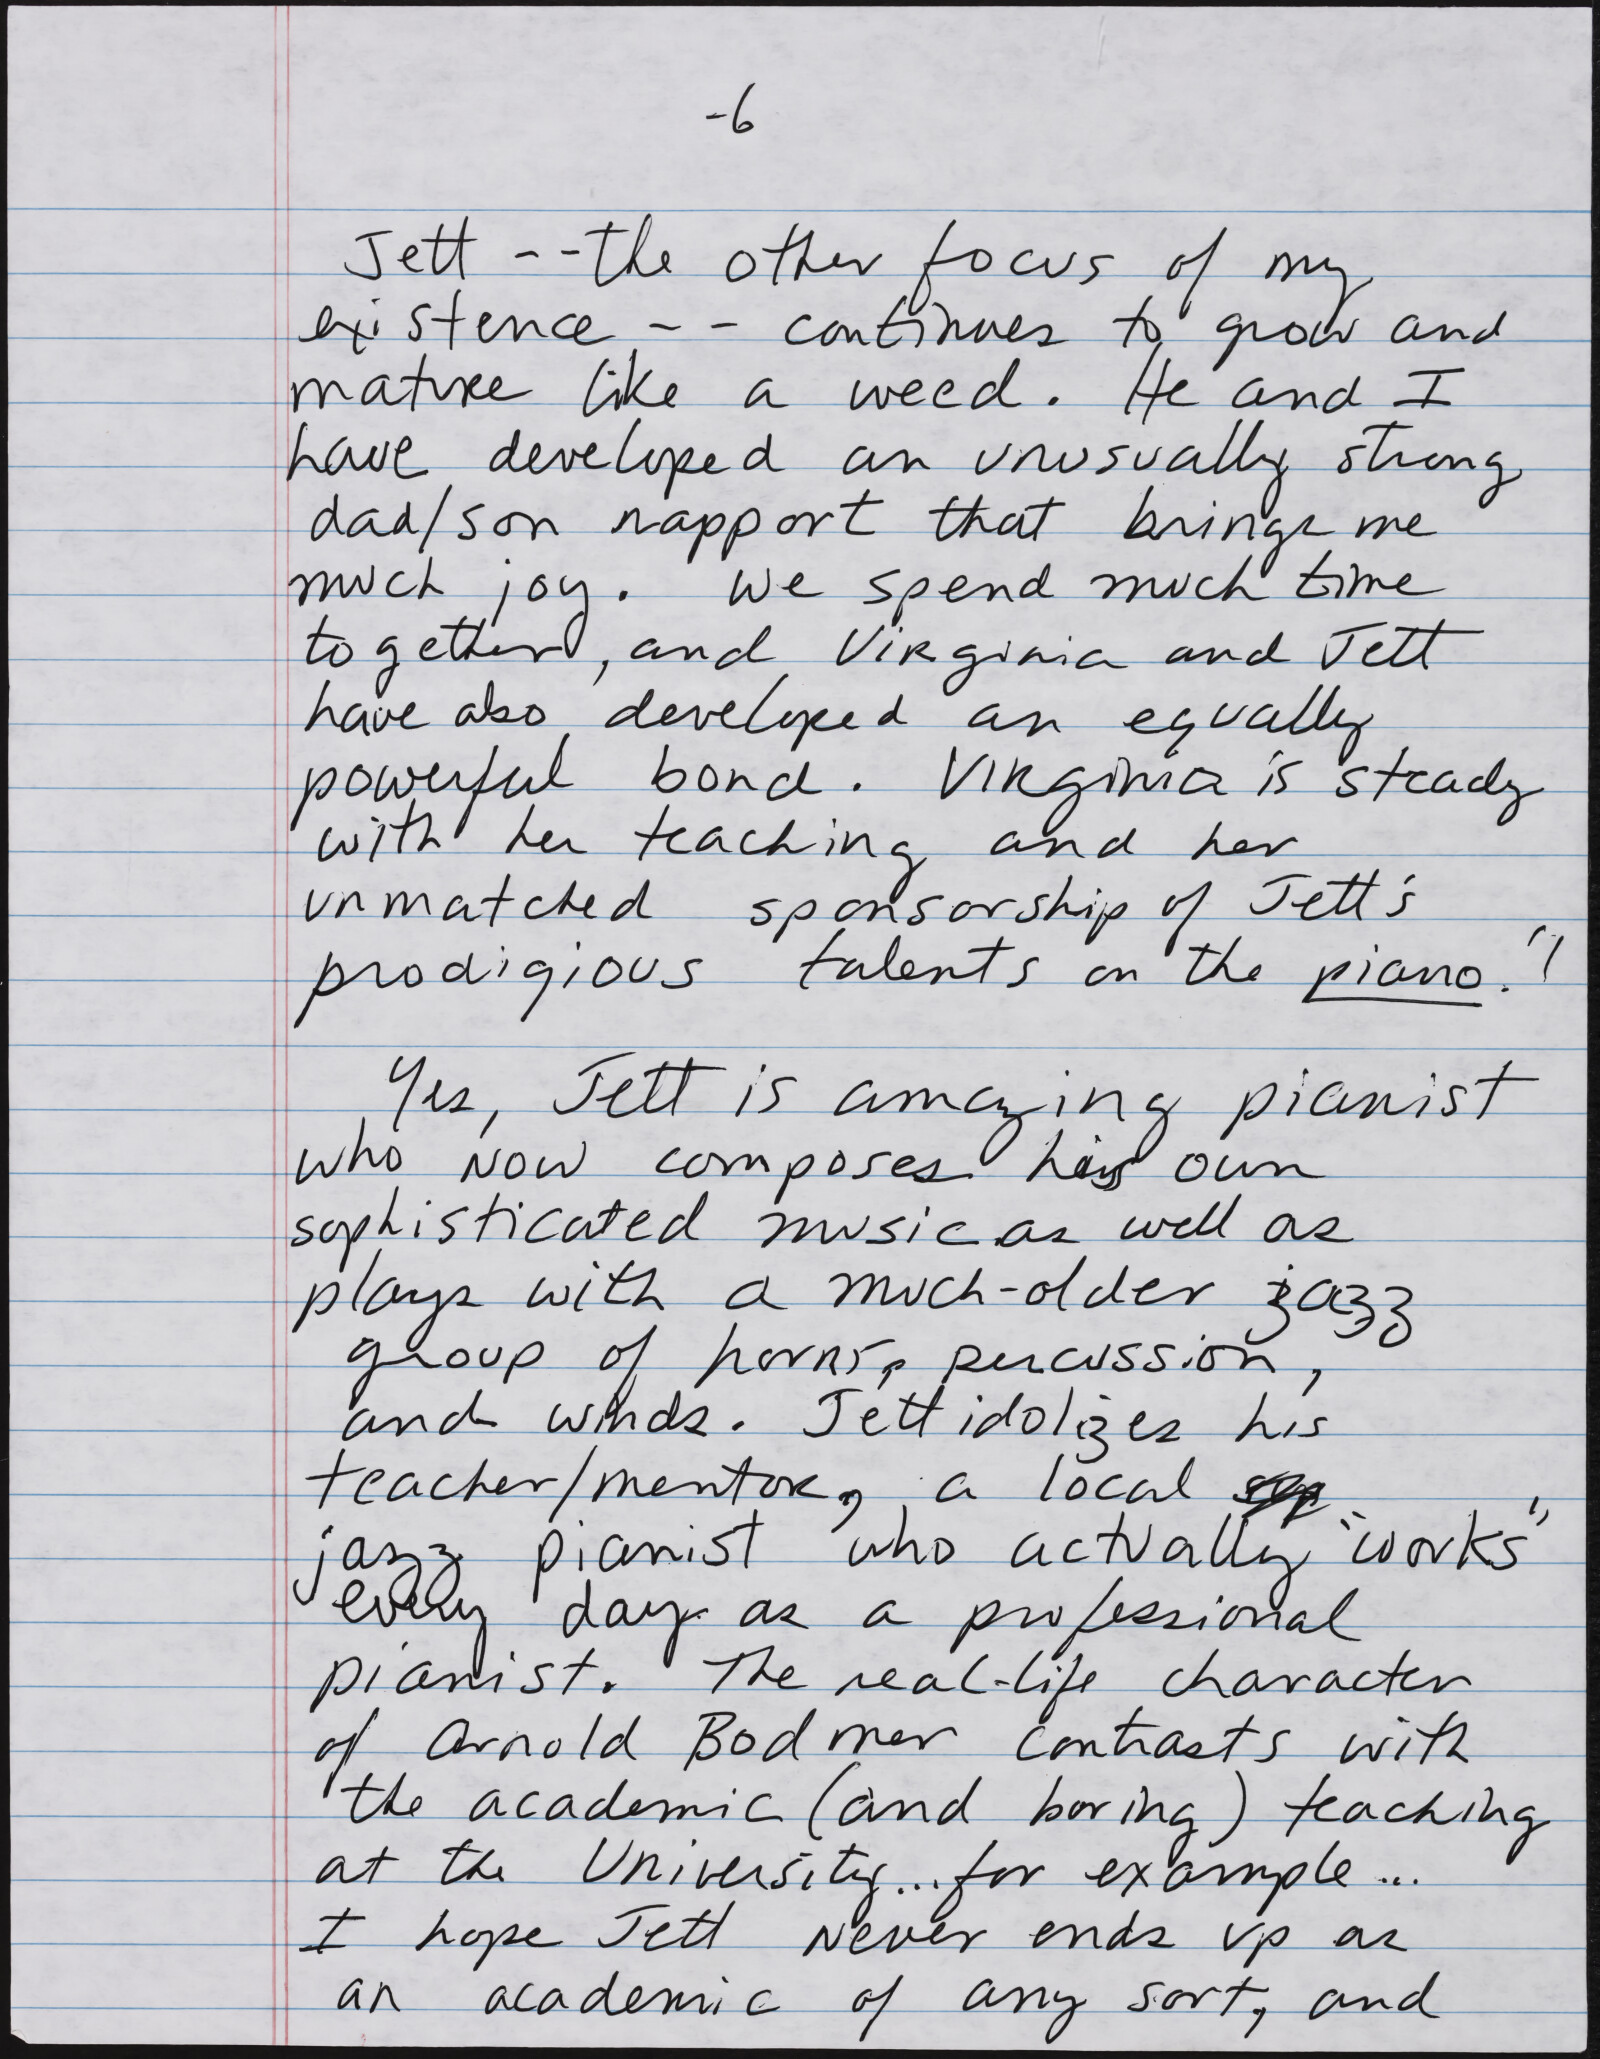 -6
Jett -- the other focus of my
existence -- continues to grow and
mature like a weed. He and I
have developed an unusually strong
dad/son rapport that brings me
much joy. We spend much time
together, and Virginia and Jett
have also developed an equally
powerful bond. Virginia is steady
with her teaching and her
unmatched sponsorship of Jett's
prodigious talents on the piano."
Yes, Jett is amazing pianist
who now composes his own
sophisticated music as well as
plays with a much-older jazz
group of horns, percussion,
and winds. Jett idolizes his
teacher/mentor, a local
jazz pianist who actually "works"
every day as a professional
pianist. The real-life character
of Arnold Bodmer contrasts with
the academic (and boring) teaching
at the University...for example...
I hope Jett never ends up as
an academic of any sort, and